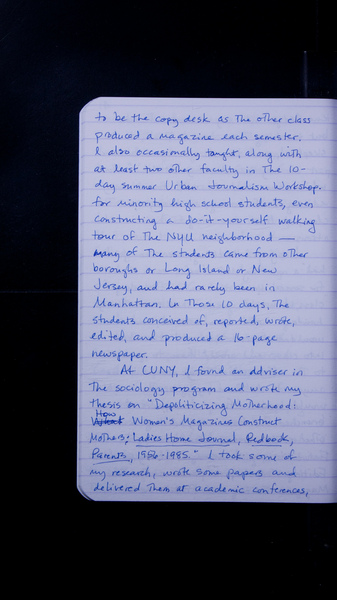 to be the copy desk as the other class
produced a magazine each semester.
I also occasionally taught, along with
at least two other faculty in the 10-
day summer Urban Journalism Workshop
for minority high school students, even
constructing a do-it-yourself walking
tour of the NYU neighborhood —
many of the students came from other
boroughs or Long Island or New
Jersey, and had rarely been in
Manhattan. In those 10 days, the
students conceived of, reported, wrote,
edited, and produced a 16-page
newspaper.
At CUNY, I found an adviser in
the sociology program and wrote my
thesis on "Depoliticizing Motherhood:
How Women's Magazines Construct
Mothers: Ladies Home Journal, Redbook,
Parents, 1956-1985." I took some of
my research, wrote some papers and
delivered them at academic conferences,